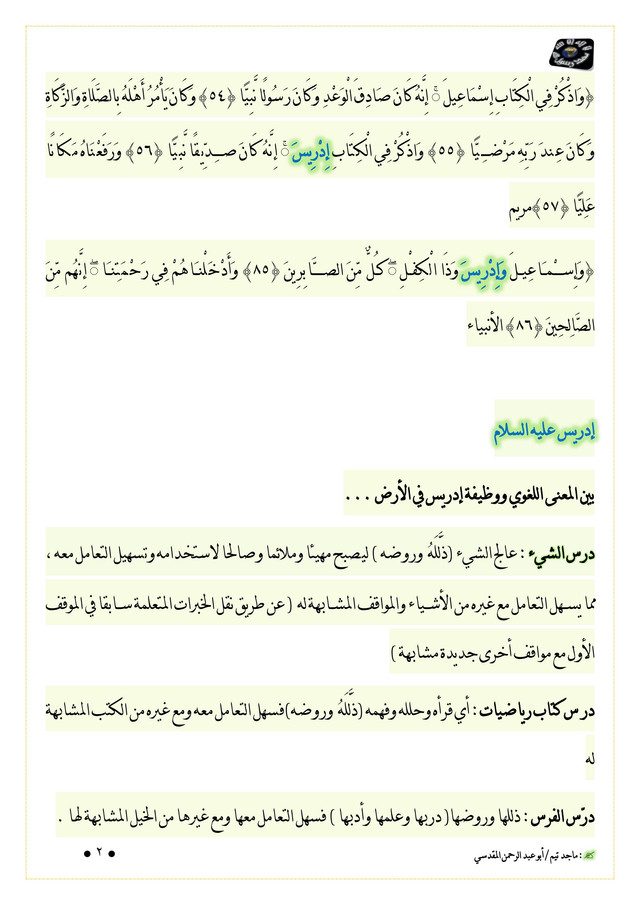 ﴿وَاذْكُرْ فِي الْكِتَابِ إِسْمَاعِيلَ ۚ إِنَّهُ كَانَ صَادِقَ الْوَعْدِ وَكَانَ رَسُولًا نَّبِيًّا ﴿٥٤﴾ وَكَانَ يَأْمُرُ أَهْلَهُ بِالصَّلَاةِ وَالزَّكَاةِ
وَكَانَ عِندَ رَبِّهِ مَرْضِيًّا ﴿٥٥﴾ وَاذْكُرْ فِي الْكِتَابِ إِدْرِيسَ ۚ إِنَّهُ كَانَ صِدِّيقًا نَّبِيًّا ﴿٥٦﴾ وَرَفَعْنَاهُ مَكَانًا
عَلِيًّا ﴿٥٧﴾مريم
﴿وَإِسْمَاعِيلَ وَإِدْرِيسَ وَذَا الْكِفْلِ ۖ كُلٌّ مِّنَ الصَّابِرِينَ ﴿٨٥﴾ وَأَدْخَلْنَاهُمْ فِي رَحْمَتِنَا ۖ إِنَّهُم مِّنَ
الصَّالِحِينَ ﴿٨٦﴾ الأنبياء
إدريس عليه السلام
بين المعنى اللغوي ووظيفة إدريس في الأرض ...
درس الشيء : عالج الشيء (ذَلَّلَهُ وروضه ) ليصبح مهيئا وملائما وصالحا لاستخدامه وتسهيل التعامل معه ،
مما يسهل التعامل مع غيره من الأشياء والمواقف المشابهة له ( عن طريق نقل الخبرات المتعلمة سابقا في الموقف
الأول مع مواقف أخرى جديدة مشابهة )
درس كتاب رياضيات : أي قرأه وحلله وفهمه (ذَلَّلَهُ وروضه)فسهل التعامل معه ومع غيره من الكتب المشابهة
له
درّس الفرس : ذللها وروضها( دربها وعلمها وأدبها ) فسهل التعامل معها ومع غيرها من الخيل المشابهة لها .
: ماجد تيم / أبو عبد الرحمن المقدسي
● ٢ ●